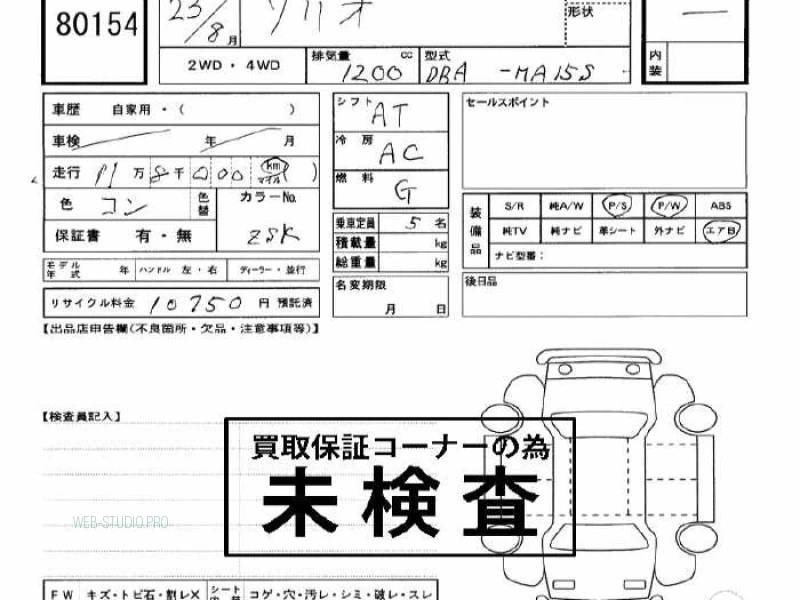 80154
23/8月 ソリオ
形状
2WD・4WD 排気量 1200 cc 型式 DBA-MA15S
内装
車歴 自家用・( )
車検 年 月
走行 11万8千000 km マイル )
色 コン 色替 カラーNo. ZSK
保証書 有・無
モデル年式 年 ハンドル 左・右 ディーラー・並行
リサイクル料金 10750 円 預託済
シフト AT
冷房 AC
燃料 G
乗車定員 5 名
積載量 kg
総重量 kg
名変期限 月 日
セールスポイント
装備品 S/R 純A/W P/S P/W ABS
純TV 純ナビ 革シート 外ナビ エアB
ナビ型番：
後日品
【出品店申告欄(不良箇所・欠品・注意事項等)】
【検査員記入】
買取保証コーナーの為
未検査
WEB-STUDIO.PRO
FW キズ・トビ石・割レX シート コゲ・穴・汚レ・シミ・破レ・スレ